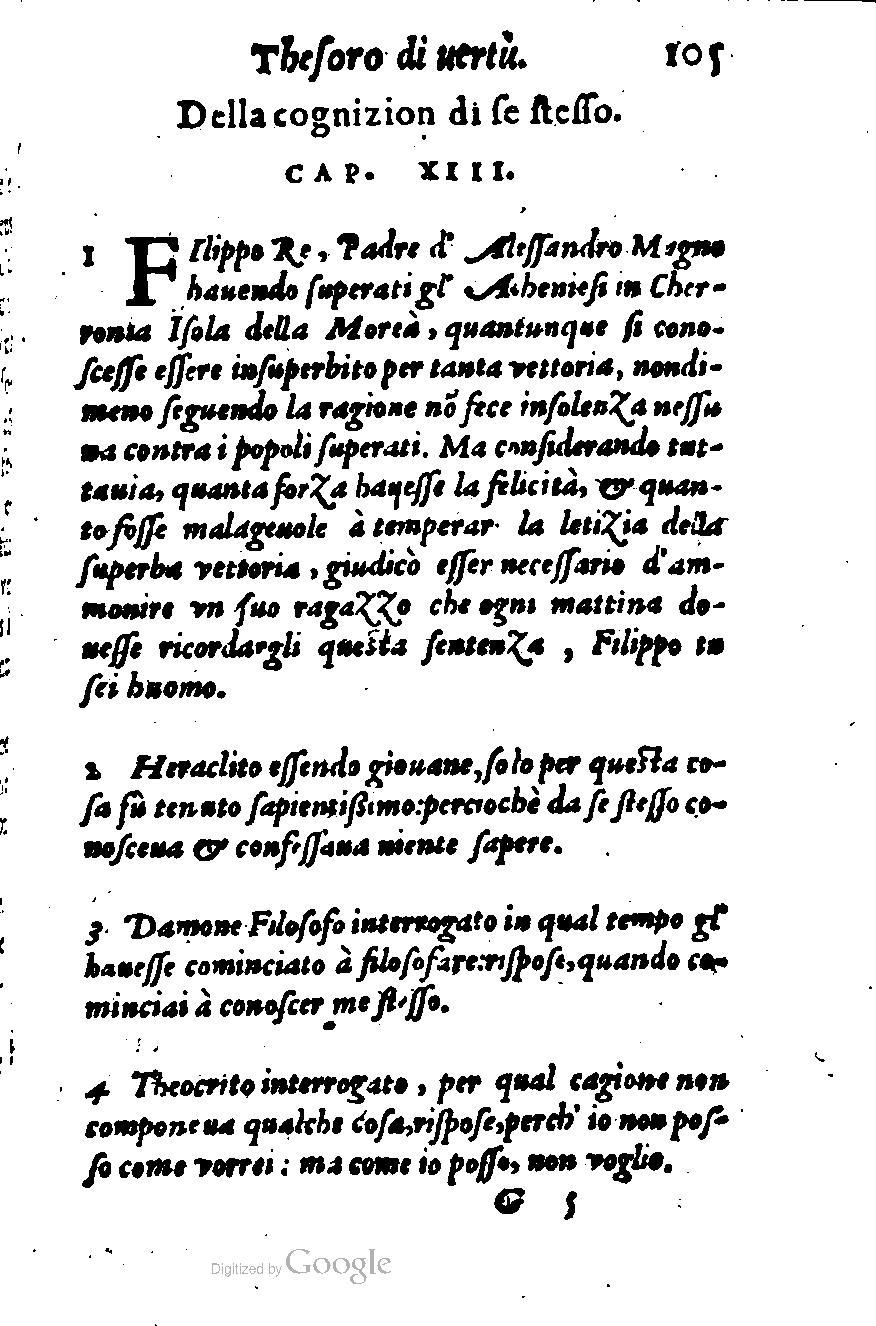 Theſoro di uertù. 105
Della cognizion di ſe ſteſſo.
CAP. XIII.
1 FIlippo Re, Padre d' Aleſſandro Magno
hauendo ſuperati gl' Athenieſi in Cher-
ronia Iſola della Moreà, quantunque ſi cono-
ſceſſe eſſere inſuperbito per tanta vettoria, nondi-
meno ſeguendo la ragione nõ fece inſolenza neſſu
na contra i popoli ſuperati. Ma conſiderando tut-
tauia, quanta forza haueſſe la felicità, & quan-
to foſſe malageuole à temperar la letizia della
ſuperba vettoria, giudicò eſſer neceſſario d'am-
monire vn ſuo ragazzo che ogni mattina do-
ueſſe ricordargli queſta ſentenza, Filippo tu
ſei huomo.
2 Heraclito eſſendo giouane, ſolo per queſta co-
ſa fù tenuto ſapientißimo: perciochè da ſe ſteſſo co-
noſceua & confeſſaua niente ſapere.
3 Damone Filoſofo interrogato in qual tempo gl'
haueſſe cominciato à filoſofare: riſpoſe, quando co-
minciai à conoſcer me ſteſſo.
4 Theocrito interrogato, per qual cagione non
componeua qualche coſa, riſpoſe, perch' io non poſ-
ſo come vorrei: ma come io poſſo, non voglio.
G 5
Digitized by Google